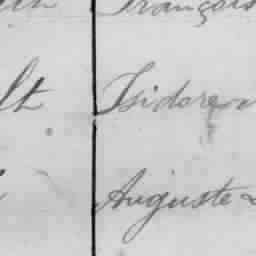 François
lt Isidore
Auguste